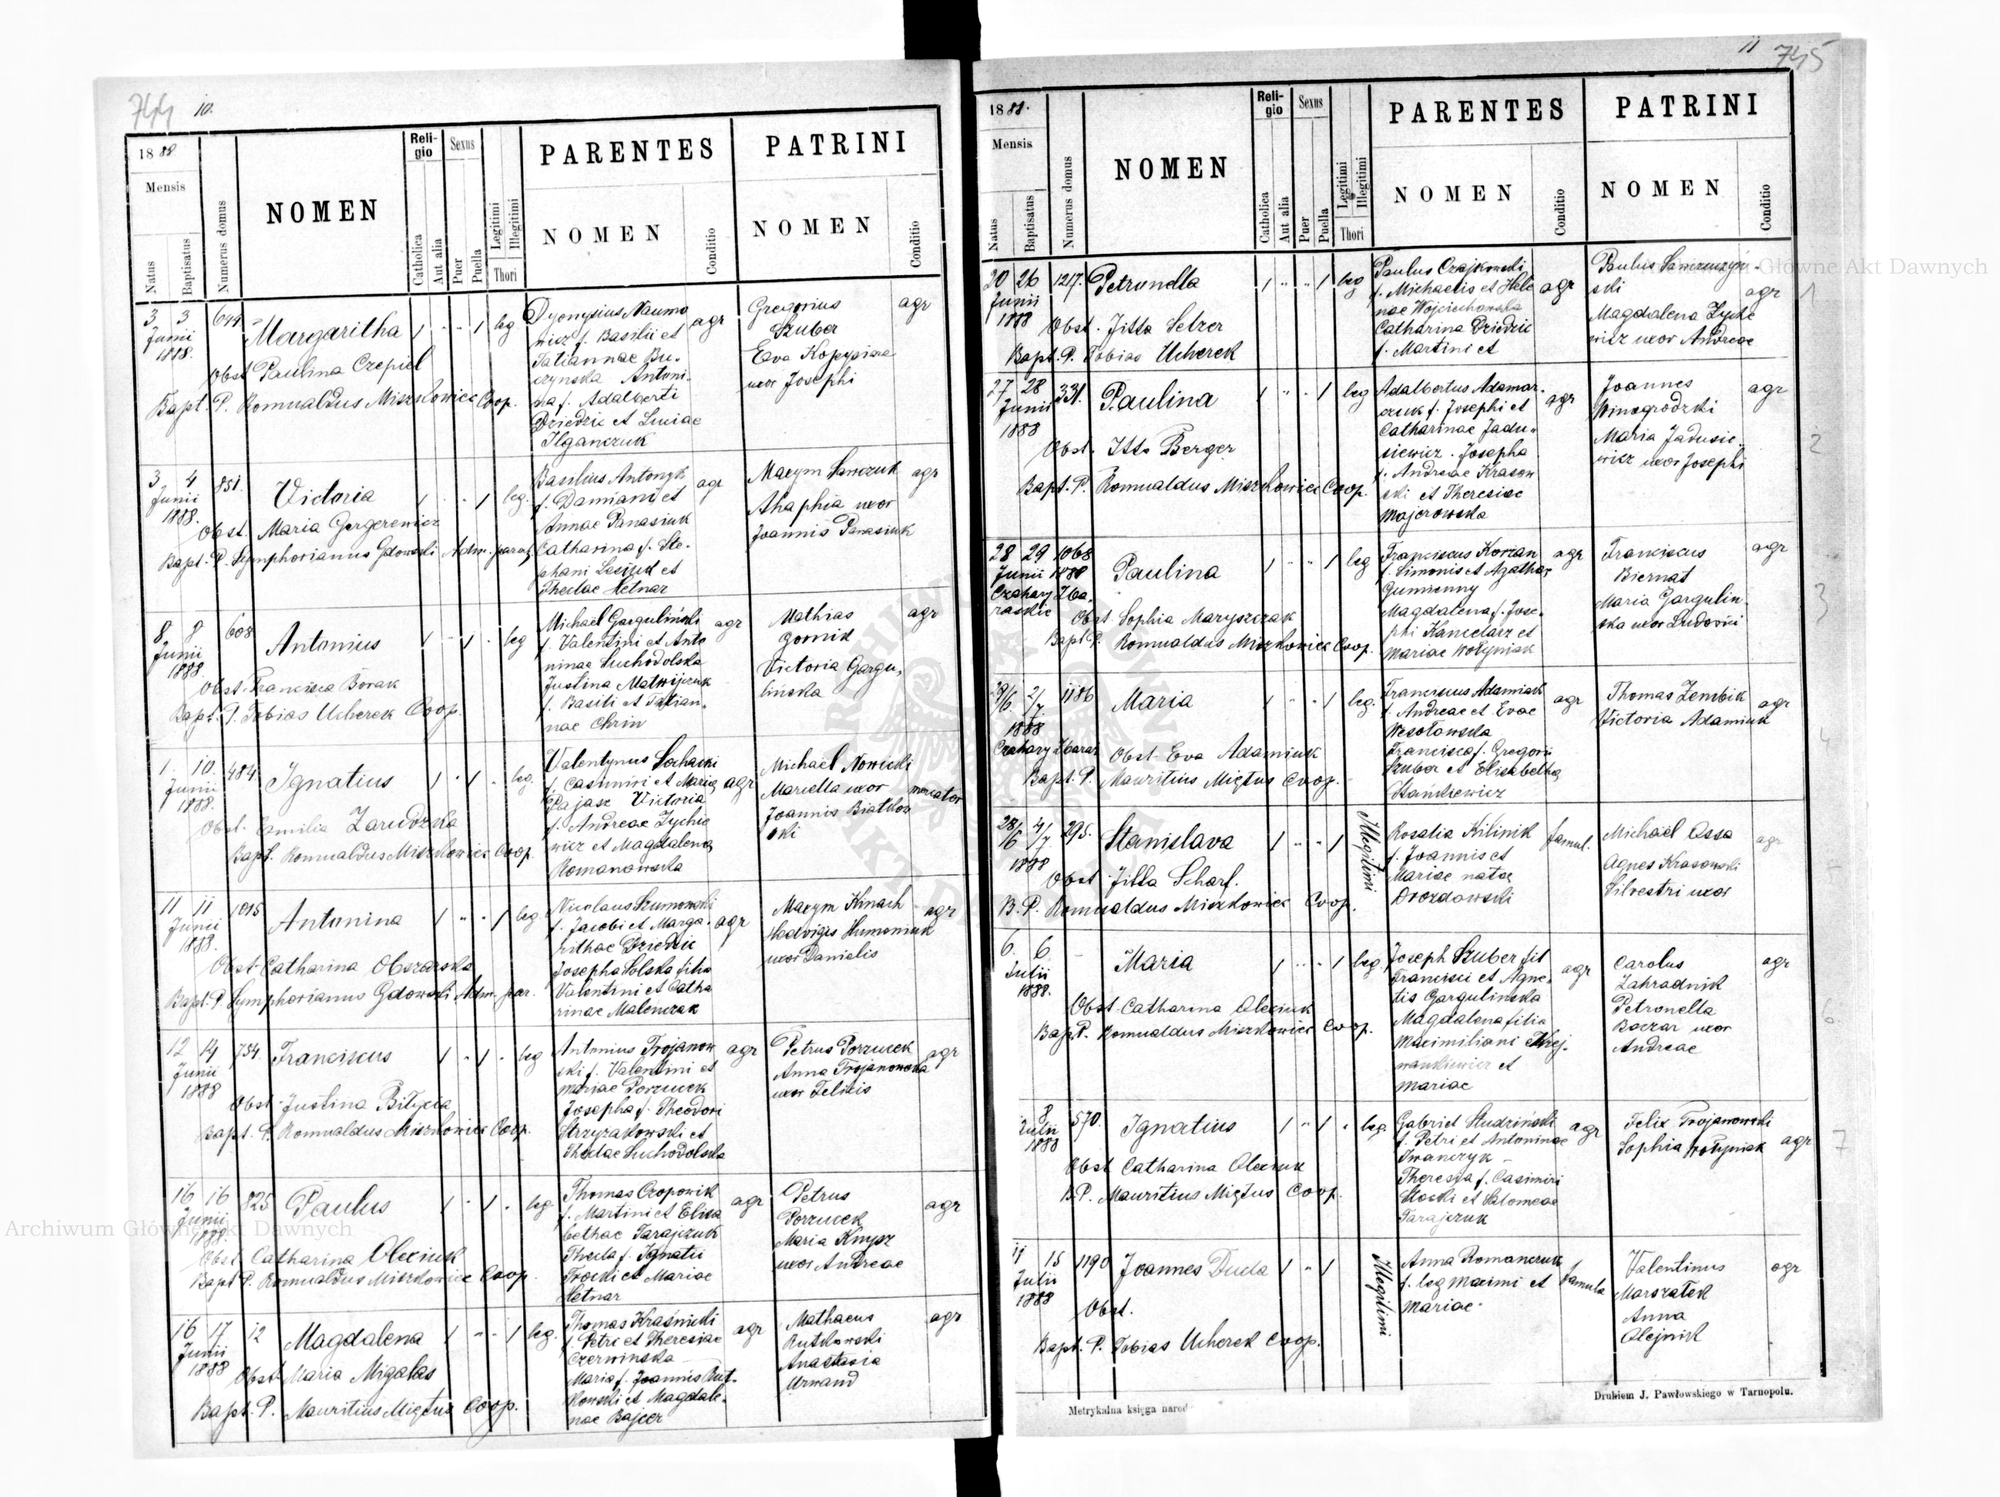 744 10.
1888
Mensis
Natus
Baptisatus
Numerus domus
NOMEN
Reli-
gio
Catholica
Aut alia
Sexus
Puer
Puella
Legitimi
Illegitimi
Thori
PARENTES
NOMEN
Conditio
PATRINI
NOMEN
Conditio
3 3 644 Margaritha 1 " " 1 leg
Junii
1888.
Obst Paulina Czepiel
Bapt. P. Romualdus Miszkowicz Coop.
Dyonysius Naumo
wicz f. Basilii et
Tatiannae Bu-
czynska Antoni-
na f. Adalberti
Dziedzic et Luciae
Ilganczuk
agr
Gregorius
Szuber
Eva Kopypiara
uxor Josephi
agr
3 4 851. Victoria 1 " " 1 leg.
Junii
1888.
Obst. Maria Gergerewicz
Bapt. P. Symphorianus Gdowski Adm. paroch
Basilius Antonyk
f. Damiani et
Annae Panasiuk
Catharina f. Ste-
phani Lesiuk et
Theclae Hetnar
agr
Maxym Sawczuk
Ahaphia uxor
Joannis Panasiuk
agr
8. 8 608 Antonius 1 " 1 " leg
Junii
1888
Obst. Francisca Borak
Bapt. P. Tobias Ucherek Coop.
Michael Garguliński
f. Valentini et Anto
ninae Suchodolska
Justina Matwijczuk
f. Basili et Tatian-
nae Chrin
agr
Mathias
Gornik
Victoria Gargu,
lińska
agr
1. 10. 484 Ignatius 1 " 1 " leg.
Junii
1888.
Obst. Emilia Zarudzka
Bapt. Romualdus Miszkowicz Coop.
Valentynus Sochacki
f. Casimiri et Maria
Pajasz Victoria
f. Andreae Zychie
wicz et Magdalena
Romanowska
agr
Michael Nowicki
Mariella uxor
Joannis Białkow
ski
mercator
11 11 1015 Antonina 1 " " 1 leg
Junii
1888.
Obst. Catharina Obszarska
Bapt. P. Symphorianus Gdowski Adm. par.
Nicolaus Szumowski
f. Jacobi et Marga-
rithae Dziedzic
Josepha Solska filia
Valentini et Catha
rinae Malenczak
agr
Maxym Kinach
Hedvigis Humeniuk
uxor Danielis
agr
12 14 754 Franciscus 1 " 1 " leg
Junii
1888
Obst. Justina Bilycia
Bapt. P. Romualdus Miszkowicz Coop.
Antonius Trojanow
ski f. Valentini et
Mariae Porzucek
Josepha f. Theodori
Strzyzakowski et
Theclae Suchodolska
agr
Petrus Porzucek
Anna Trojanowska
uxor Felicis
agr
16 16 825 Paulus 1 " 1 " leg
Junii
1888.
Obst. Catharina Oleciuk
Bapt P. Romualdus Miszkowicz Coop.
Thomas Czopowik
f. Martini et Elisa
bethae Tarajczuk
Thecla f. Ignatii
Trocki et Mariae
Hetnar
agr
Petrus
Porzucek
Maria Knysz
uxor Andreae
agr
16 17 12 Magdalena 1 " " 1 leg.
Junii
1888
Obst. Maria Migalas
Bapt. P. Mauritius Miętus Coop.
Thomas Kraśnicki
f. Petri et Theresiae
Czerwinska
Maria f. Joannis Rut-
kowski et Magdale-
nae Bajcer
agr
Mathaeus
Rutkowski
Anastasia
Urwand
agr
11 745
1888.
Mensis
Natus
Baptisatus
Numerus domus
NOMEN
Reli-
gio
Catholica
Aut alia
Sexus
Puer
Puella
Legitimi
Illegitimi
Thori
PARENTES
NOMEN
Conditio
PATRINI
NOMEN
Conditio
20 26 1217. Petronella 1 " " 1 leg
Junii
1888
Obst. Jitta Selzer
Bapt. P. Tobias Ucherek
Paulus Czajkowski
f. Michaelis et Hele
nae Wojciechowska
Catharina Dziedzic
f. Martini et
agr
Paulus
ski
Magdalena Zyche
wicz uxor Andreae
agr
1
27 28 331. Paulina 1 " " 1 leg
Junii
1888
Obst. Itta Berger
Bapt. P. Romualdus Miszkowicz Coop.
Adalbertus Adamar-
czuk f. Josephi et
Catharinae Jadu"
siewicz. Josepha
f. Andreae Krasow
ski et Theresiae
Majerowska
agr
Joannes
Winogrodzki
Maria Jadusie"
wicz uxor Josephi
agr
2
28 29 1068 Paulina 1 " " 1 leg
Junii 1888
Czahary Zba,
raskie
Obst. Sophia Maryszczak
Bapt. P. Romualdus Miszkowicz Coop.
Franciscus Korzan
f. Simonis et Agathae
Gumienny
Magdalena f. Jose-
phi Kancelarz et
Mariae Wołyniak
agr
Franciscus
Biernat
Maria Gargulin-
ska uxor Ludovici
agr
3
29/6 2/7 1186 Maria 1 " " 1 leg.
1888
Czahary Zbaraz
Obst. Eva Adamiuk
Bapt. P. Mauritius Miętus Coop.
Franciscus Adamiak
f. Andreae et Evae
Wesołowska
Francisca f. Gregorii
Szuber et Elisabetha
Stankiewicz
agr
Thomas Zembik
Victoria Adamiuk
agr
4
28/6 4/7 295. Stanislava 1 " " 1 Illegitimi
1888
Obst. Jitta Scharf.
B. P. Romualdus Miszkowicz Coop.
Rosalia Kilinik
f. Joannis et
Mariae natae
Drozdowski
famul.
Michael Ossa
Agnes Krasowski
Silvestri uxor
agr
6. 6 Maria 1 " " 1 leg
Julii
1888.
Obst. Catharina Oleciuk
Bapt P. Romualdus Miszkowicz Coop.
Joseph Szuber fil
Francisci et Agne-
tis Gargulinska
Magdalena filia
Maximiliani
et
Mariae
agr
Carolus
Zahradnik
Petronella
Baczar uxor
Andreae
agr
6
8 570 Ignatius 1 " 1 " leg
Julii
1888
Obst Catharina Oleciuk
B.P. Mauritius Miętus Coop.
Gabriel Studziński
f. Petri et Antoninae
Iwanczyk -
Theresia f. Casimiri
Stocki et Salomeae
Tarajczuk
agr
Felix Trojanowski
Sophia Wołyniak
agr
7
11 15 1190 Joannes Duda 1 " 1 Illegitimi
Julii
1888
Obst.
Bapt. P. Tobias Ucherek Coop.
Anna Romanczuk
f. leg Maximi et
Mariae.
famula
Valentinus
Marszałek
Anna
Olejnik
agr
Metrykalna księga narod
Drukiem J. Pawłowskiego w Tarnopolu.
Archiwum Główne Akt Dawnych
Główne Akt Dawnych